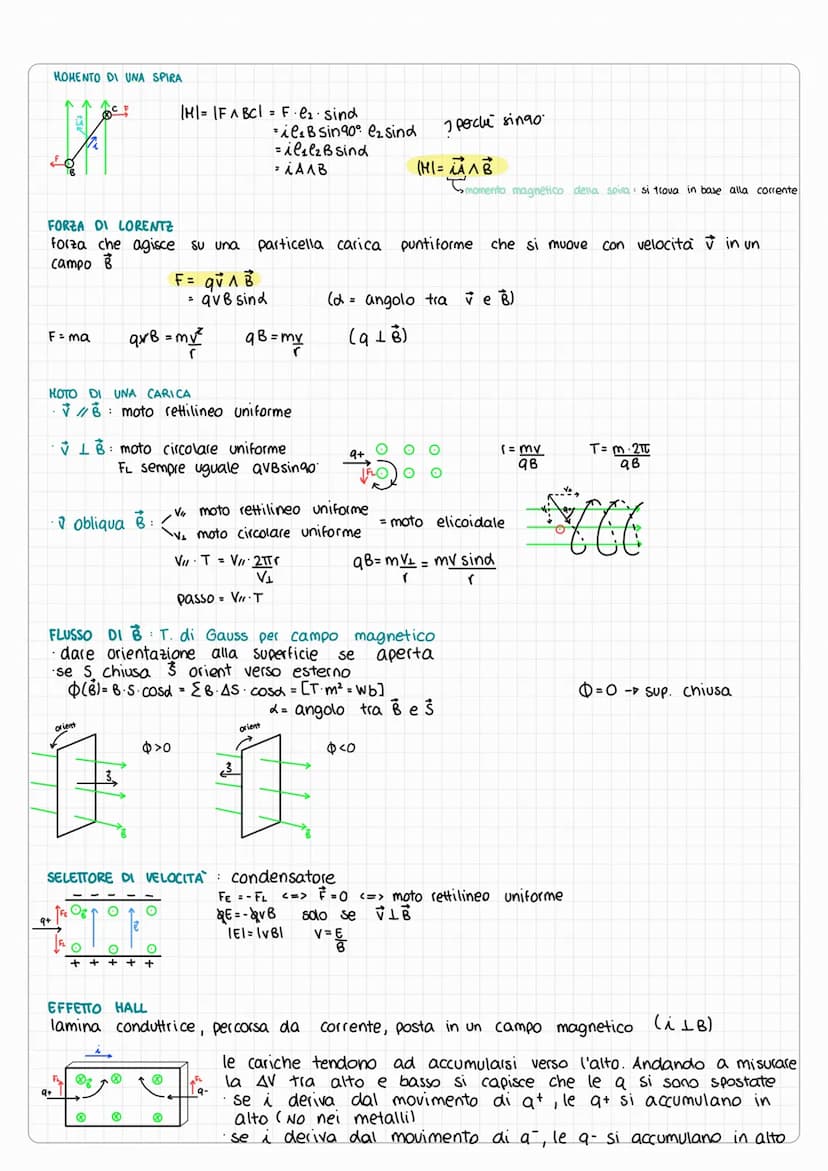 MOMENTO DI UNA SPIRA
|M|= |F ∧ BC| = F · ℓ₂ · sinα
= iℓ₁B sin90° ℓ₂ sinα
? perché sin90°
= iℓ₁ℓ₂B sinα
= iA∧B
|M|= iA⃗ ∧ B⃗
momento magnetico della spira: si trova in base alla corrente
C
F
i
F
B
FORZA DI LORENTZ
forza che agisce su una particella carica puntiforme che si muove con velocità v⃗ in un
campo B⃗
F = qv⃗ ∧ B⃗
= qvB sinα (α = angolo tra v⃗ e B⃗)
F = ma qvB = mv²/r qB = mv/r (q ⊥ B⃗)
MOTO DI UNA CARICA
· v⃗ // B⃗ : moto rettilineo uniforme
· v⃗ ⊥ B⃗ : moto circolare uniforme
FL sempre uguale qvBsin90°
q+
FL
r = mv/qB T = m·2π/qB
· v⃗ obliqua B⃗ : v// moto rettilineo uniforme
v⊥ moto circolare uniforme
= moto elicoidale
V// · T = V// · 2πr/V⊥ qB = mV⊥/r = mv sinα/r
passo = V// · T
FLUSSO DI B⃗ : T. di Gauss per campo magnetico
· dare orientazione alla superficie se aperta
· se S chiusa S⃗ orient verso esterno
Φ(B⃗) = B · S · cosα = ΣB · ΔS · cosα = [T·m² = Wb] Φ=0 → sup. chiusa
α = angolo tra B⃗ e S⃗
orient Φ>0 S⃗ B⃗
orient Φ<0 S⃗ B⃗
SELETTORE DI VELOCITÀ : condensatore
FE = -FL <=> F⃗ = 0 <=> moto rettilineo uniforme
qE = -qvB solo se v⃗ ⊥ B⃗
|E| = |vB| v = E/B
- - - - -
q+ FE B⃗ E⃗
FL
+ + + + +
EFFETTO HALL
lamina conduttrice, percorsa da corrente, posta in un campo magnetico (i ⊥ B)
i
FL B⃗ FL
q+ q-
le cariche tendono ad accumularsi verso l'alto. Andando a misurare
la ΔV tra alto e basso si capisce che le q si sono spostate
· se i deriva dal movimento di q+, le q+ si accumulano in
alto (NO nei metalli)
· se i deriva dal movimento di q-, le q- si accumulano in alto